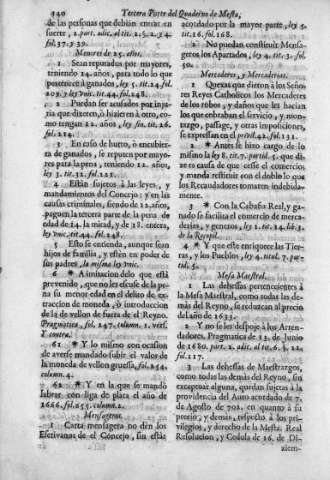 240 Tercera Parte del Quaderno de Mesta,
de las personas que debian entrar en
suerte, 1. part. adic. al tit. 2. §. 2. 34.
fol. 37. y 39.
Menores de 25. años.
1 Sean reputados por mayores,
teniendo 24. años, para todo lo que
posteriormente à ganados, ley 5. tit. 24. fol.
203. y ley vnic. tit. 44. fol. 248.
2 Puedan ser acusados por injuria
que dixeren, ò hizieren à otro, como
tengan 12. años, ley fin. tit. 26.
fol. 214.
3 En caso de hurto, ò encubierta
de ganados, se reputen por mayores
para la pena, teniendo 12. años,
ley 3. tit. 32. fol. 225.
4 Estàn sujetos à las leyes, y
mandamientos del Concejo: y en las
causas criminales, siendo de 12. años,
paguen la tercera parte de la pena de
edad de 14. la mitad, y de 18. entera,
ley vnic. tit. 44. fol. 248.
5 Esto se entienda, aunque sean
hijos de familia, y estèn en poder de
sus padres, la misma ley vnic.
6 * A imitacion de lo que està
prevenido, que no les escuse de la pena
su menor edad en el delito de extraccion
de moneda, ò introduccion
de la de vellon de fuera de el Reyno.
Pragmatica, fol. 247. column. 1. vers.
Y contra.
61 * Y lo mismo con ocasion
de averse mandado subir el valor de
la moneda de vellon gruessa, fol. 254.
column. 4.
62 * Y en la que se mandò
labrar con liga de plata el año de
1666. fol. 255. column. 2.
Mensageros.
1 Carta mensagera no dèn los
Escrivanos de el Concejo, sin estàr
acordado por la mayor parte, ley 5.
tit. 16. fol. 168.
2 No puedan constituir Mensageros
los Apartados, ley 4. tit. 3. fol.
50.
Mercaderes, y Mercaderias.
1 Quexas que dieron à los Señores
Reyes Catholicos los Mercaderes
de los robos, y daños que les hacian
los que cobraban el servicio, y montazgo,
passage, y otras imposiciones,
se expressan en el privil. 42. fol. 131.
2 * Antes se hizo cargo de lo
mismo la ley 8. tit. 7. partid. 5. que dize
es causa de que cesse el comercio:
y manda restituir con el doblo lo que
los Recaudadores tomaren indebidamente.
3 * Con la Cabaña Real, y ganado
se facilita el comercio de mercaderias,
y generos, ley 1. tit. 14. lib. 3.
de la Recopil.
4 * Y que este enriquece las Tierras,
y los Pueblos, ley 4. titul. 7. partid. 5.
Mesa Maestral.
1 Las dehessas pertenecientes à
la Mesa Maestral, como todas las demàs
del Reyno, se reduzcan al precio
del año de 1633.
2 Y no se les despoje à los Arrendadores,
Pragmatica de 13. de Junio
de 1680. part. 2. adic. al tit. 6. §. 22.
fol. 117.
3 Las dehessas de Maestrazgos,
como todas las demàs del Reyno, sin
exceptuar alguna, quedan sujetas à la
providencia del Auto acordado de 7.
de Agosto de 702. en quanto à su
precio, y demàs, respecto à los privilegios,
y derecho de la Mesta. Real
Resolucion, y Cedula de 16. de Diziem-